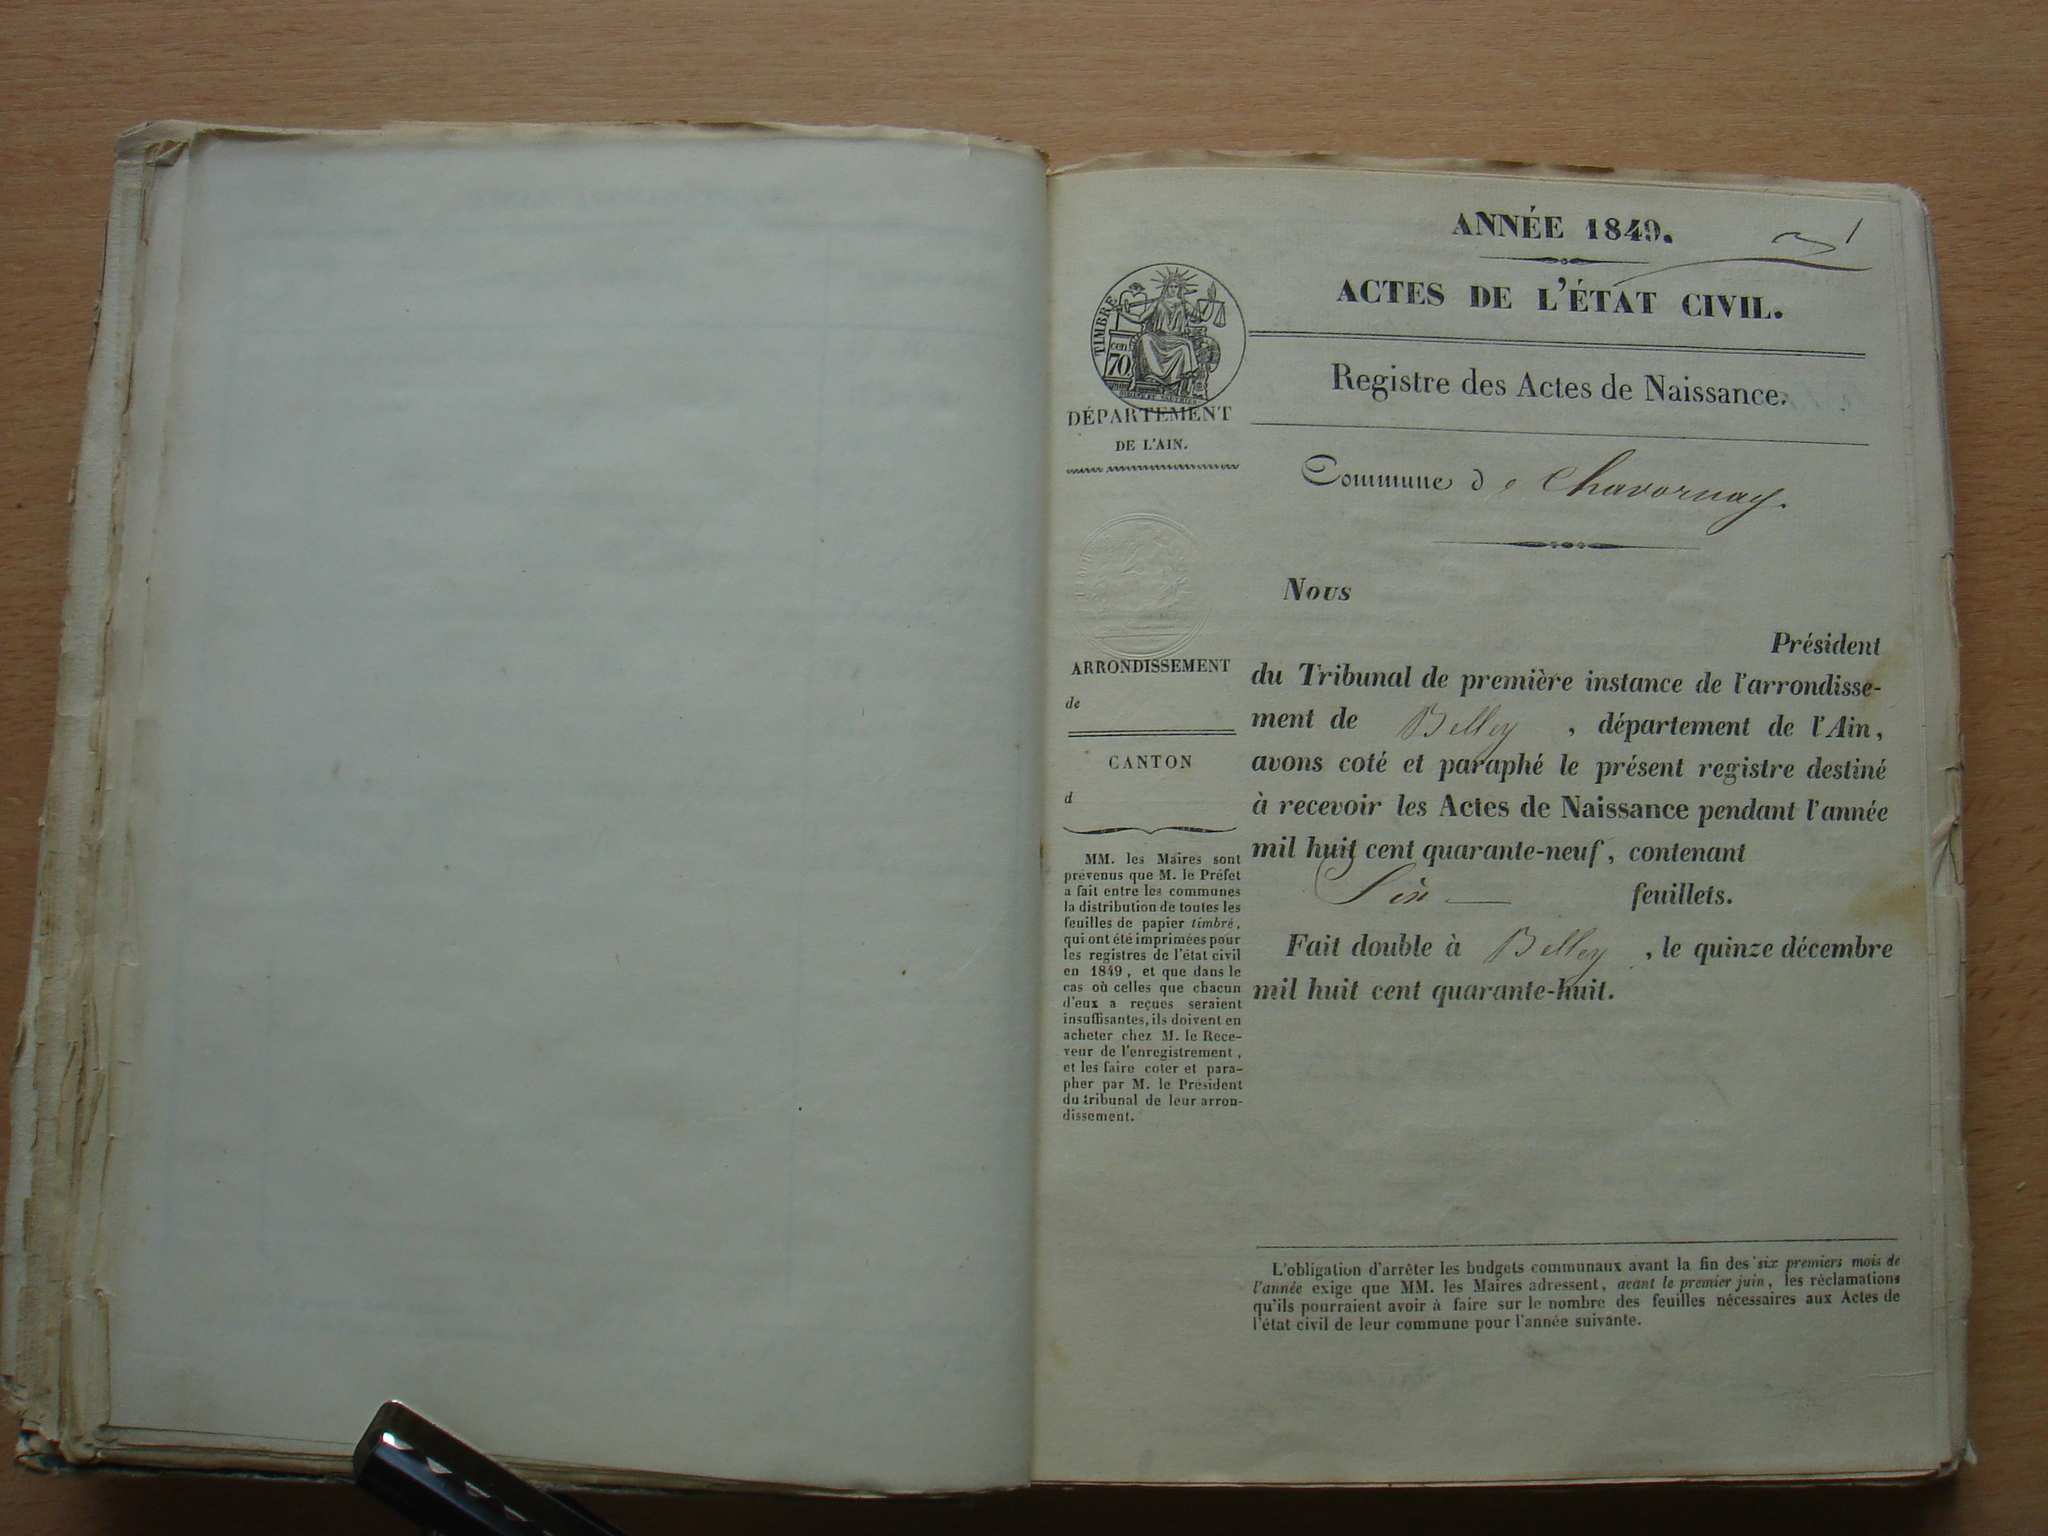 ANNÉE 1849.
1
ACTES DE L'ÉTAT CIVIL.
Registre des Actes de Naissance.
Commune de Chavornay.
TIMBRE
cen
70
DÉPARTEMENT
DE L'AIN.
ARRONDISSEMENT
de
CANTON
d
MM. les Maires sont
prévenus que M. le Préfet
a fait entre les communes
la distribution de toutes les
feuilles de papier timbré,
qui ont été imprimées pour
les registres de l'état civil
en 1849, et que dans le
cas où celles que chacun
d'eux a reçues seraient
insuffisantes, ils doivent en
acheter chez M. le Rece-
veur de l'enregistrement,
et les faire coter et para-
pher par M. le Président
du tribunal de leur arron-
dissement.
Nous
Président
du Tribunal de première instance de l'arrondisse-
ment de Belley, département de l'Ain,
avons coté et paraphé le présent registre destiné
à recevoir les Actes de Naissance pendant l'année
mil huit cent quarante-neuf, contenant
Six feuillets.
Fait double à Belley, le quinze décembre
mil huit cent quarante-huit.
L'obligation d'arrêter les budgets communaux avant la fin des six premiers mois de
l'année exige que MM. les Maires adressent, avant le premier juin, les réclamations
qu'ils pourraient avoir à faire sur le nombre des feuilles nécessaires aux Actes de
l'état civil de leur commune pour l'année suivante.